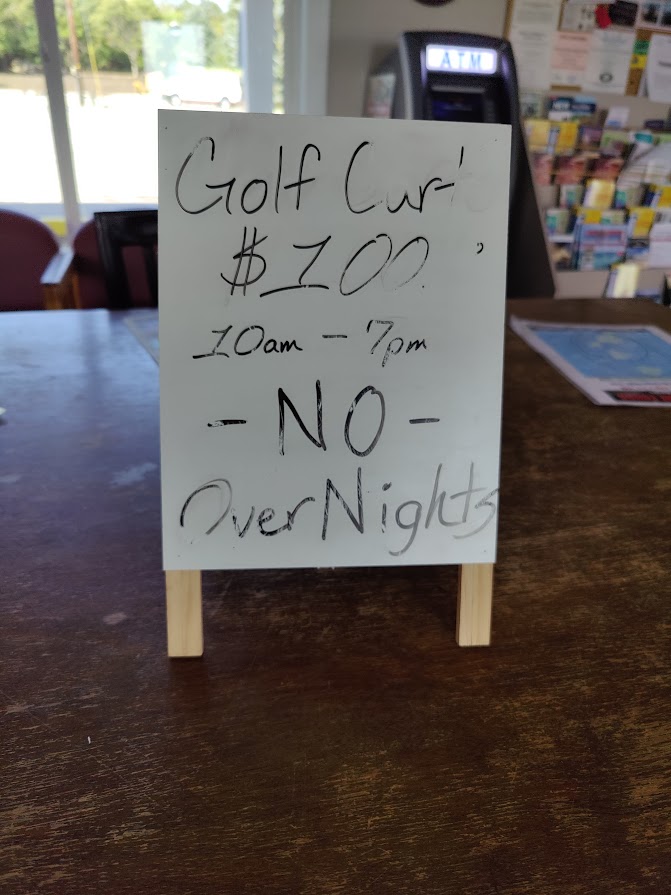 ATM
Golf Curt
$100.
10am - 7pm
- NO -
OverNights